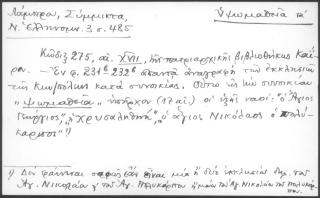 Λάμπρου, Σύμμικτα, Ὑψωμαθεῖα
Ν. Ἑλληνομν. 3 σ. 485
Κῶδιξ 275, αἰ. XVII, τῆς πατριαρχικῆς βιβλιοθήκης Καΐ-
ρου. - Ἐν φ. 231α 232β ἀναγραφὴ τῶν ἐκκλησιῶν
τῆς Κων/πόλης κατὰ συνοικίας. Οὕτω εἰς τὴν συνοικίαν
"Ὑψωμαθεῖα" ὑπῆρχον (17 αἰ.) οἱ ἑξῆς ναοί: "ὁ Ἅγιος
Γεώργιος", "ἡ Χρυσαληθινή", "ὁ ἅγιος Νικόλαος ὁ πολύ-
καρπος" 1)
1) Δὲν φαίνεται σαφῶς ἐὰν εἶναι μία ἢ δύο ἐκκλησίαι δηλ. τοῦ
Ἁγ. Νικολάου τοῦ Ἁγ. Πολυκάρπου ἢ μία τοῦ Ἁγ. Νικολάου τοῦ Πολυκάρ-
που.